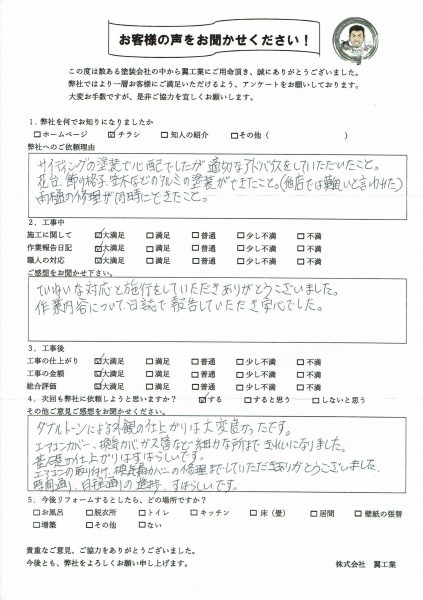 お客様の声をお聞かせください！
この度は数ある塗装会社の中から翼工業にご用命頂き、誠にありがとうございました。
弊社ではより一層お客様に満足いただけるよう、アンケートをお願いしております。
大変お手数ですが、是非ご協力を宜しくお願いします。
1．弊社を何でお知りになりましたか
□ホームページ ☑チラシ □知人の紹介 □その他（ ）
弊社へのご依頼理由
サイディングの塗装で心配でしたが適切なアドバイスをしていただいたこと。
花台、飾り格子、などのアルミの塗装ができたこと。(他店では難しいと言われた)
雨樋の修理が同時にできたこと。
2．工事中
施工に関して ☑大満足 □満足 □普通 □少し不満 □不満
作業報告日記 ☑大満足 □満足 □普通 □少し不満 □不満
職人の対応 ☑大満足 □満足 □普通 □少し不満 □不満
ご感想をお聞かせ下さい。
ていねいな対応と施行をしていただきありがとうございました。
作業内容について日誌で報告していただき安心でした。
3．工事後
工事の仕上がり ☑大満足 □満足 □普通 □少し不満 □不満
工事の金額 ☑大満足 □満足 □普通 □少し不満 □不満
総合評価 ☑大満足 □満足 □普通 □少し不満 □不満
4．次回も弊社に依頼しようと思いますか？ ☑する □すると思う □しないと思う
その他ご意見ご感想をお聞かせください。
ダブルトーンによる外観の仕上がりは大変良かったです。
エアコンカバー、換気カバー、ガス管など細かな所まできれいになりました。
基礎の仕上がりはすばらしいです。
エアコンの取り付け、換気扇カバーの修理までしていただきありがとうございました。
時間通り、日程通りの進捗、すばらしいです。
5．今後リフォームするとしたら、どの場所ですか？
□お風呂 □脱衣所 □トイレ □キッチン □床（畳） □居間 □壁紙の張替
□増築 □その他 □ない
貴重なご意見、ご協力をありがとうございました。
今後とも、弊社をよろしくお願い申し上げます。 株式会社 翼工業